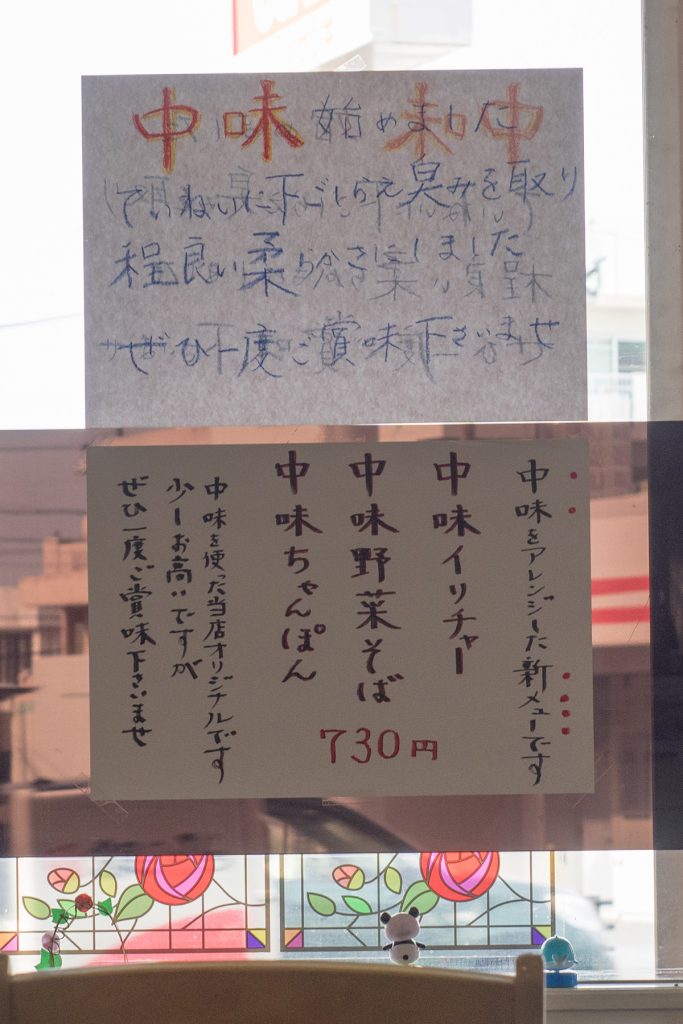 中味始めました
ていねいに下ごしらえ臭みを取り
程良い柔らかさにしました
ぜひ一度ご賞味下さいませ
中味をアレンジした新メニューです
中味イリチャー
中味野菜そば
中味ちゃんぽん
730円
中味を使った当店オリジナルです
少しお高いですが
ぜひ一度ご賞味下さいませ